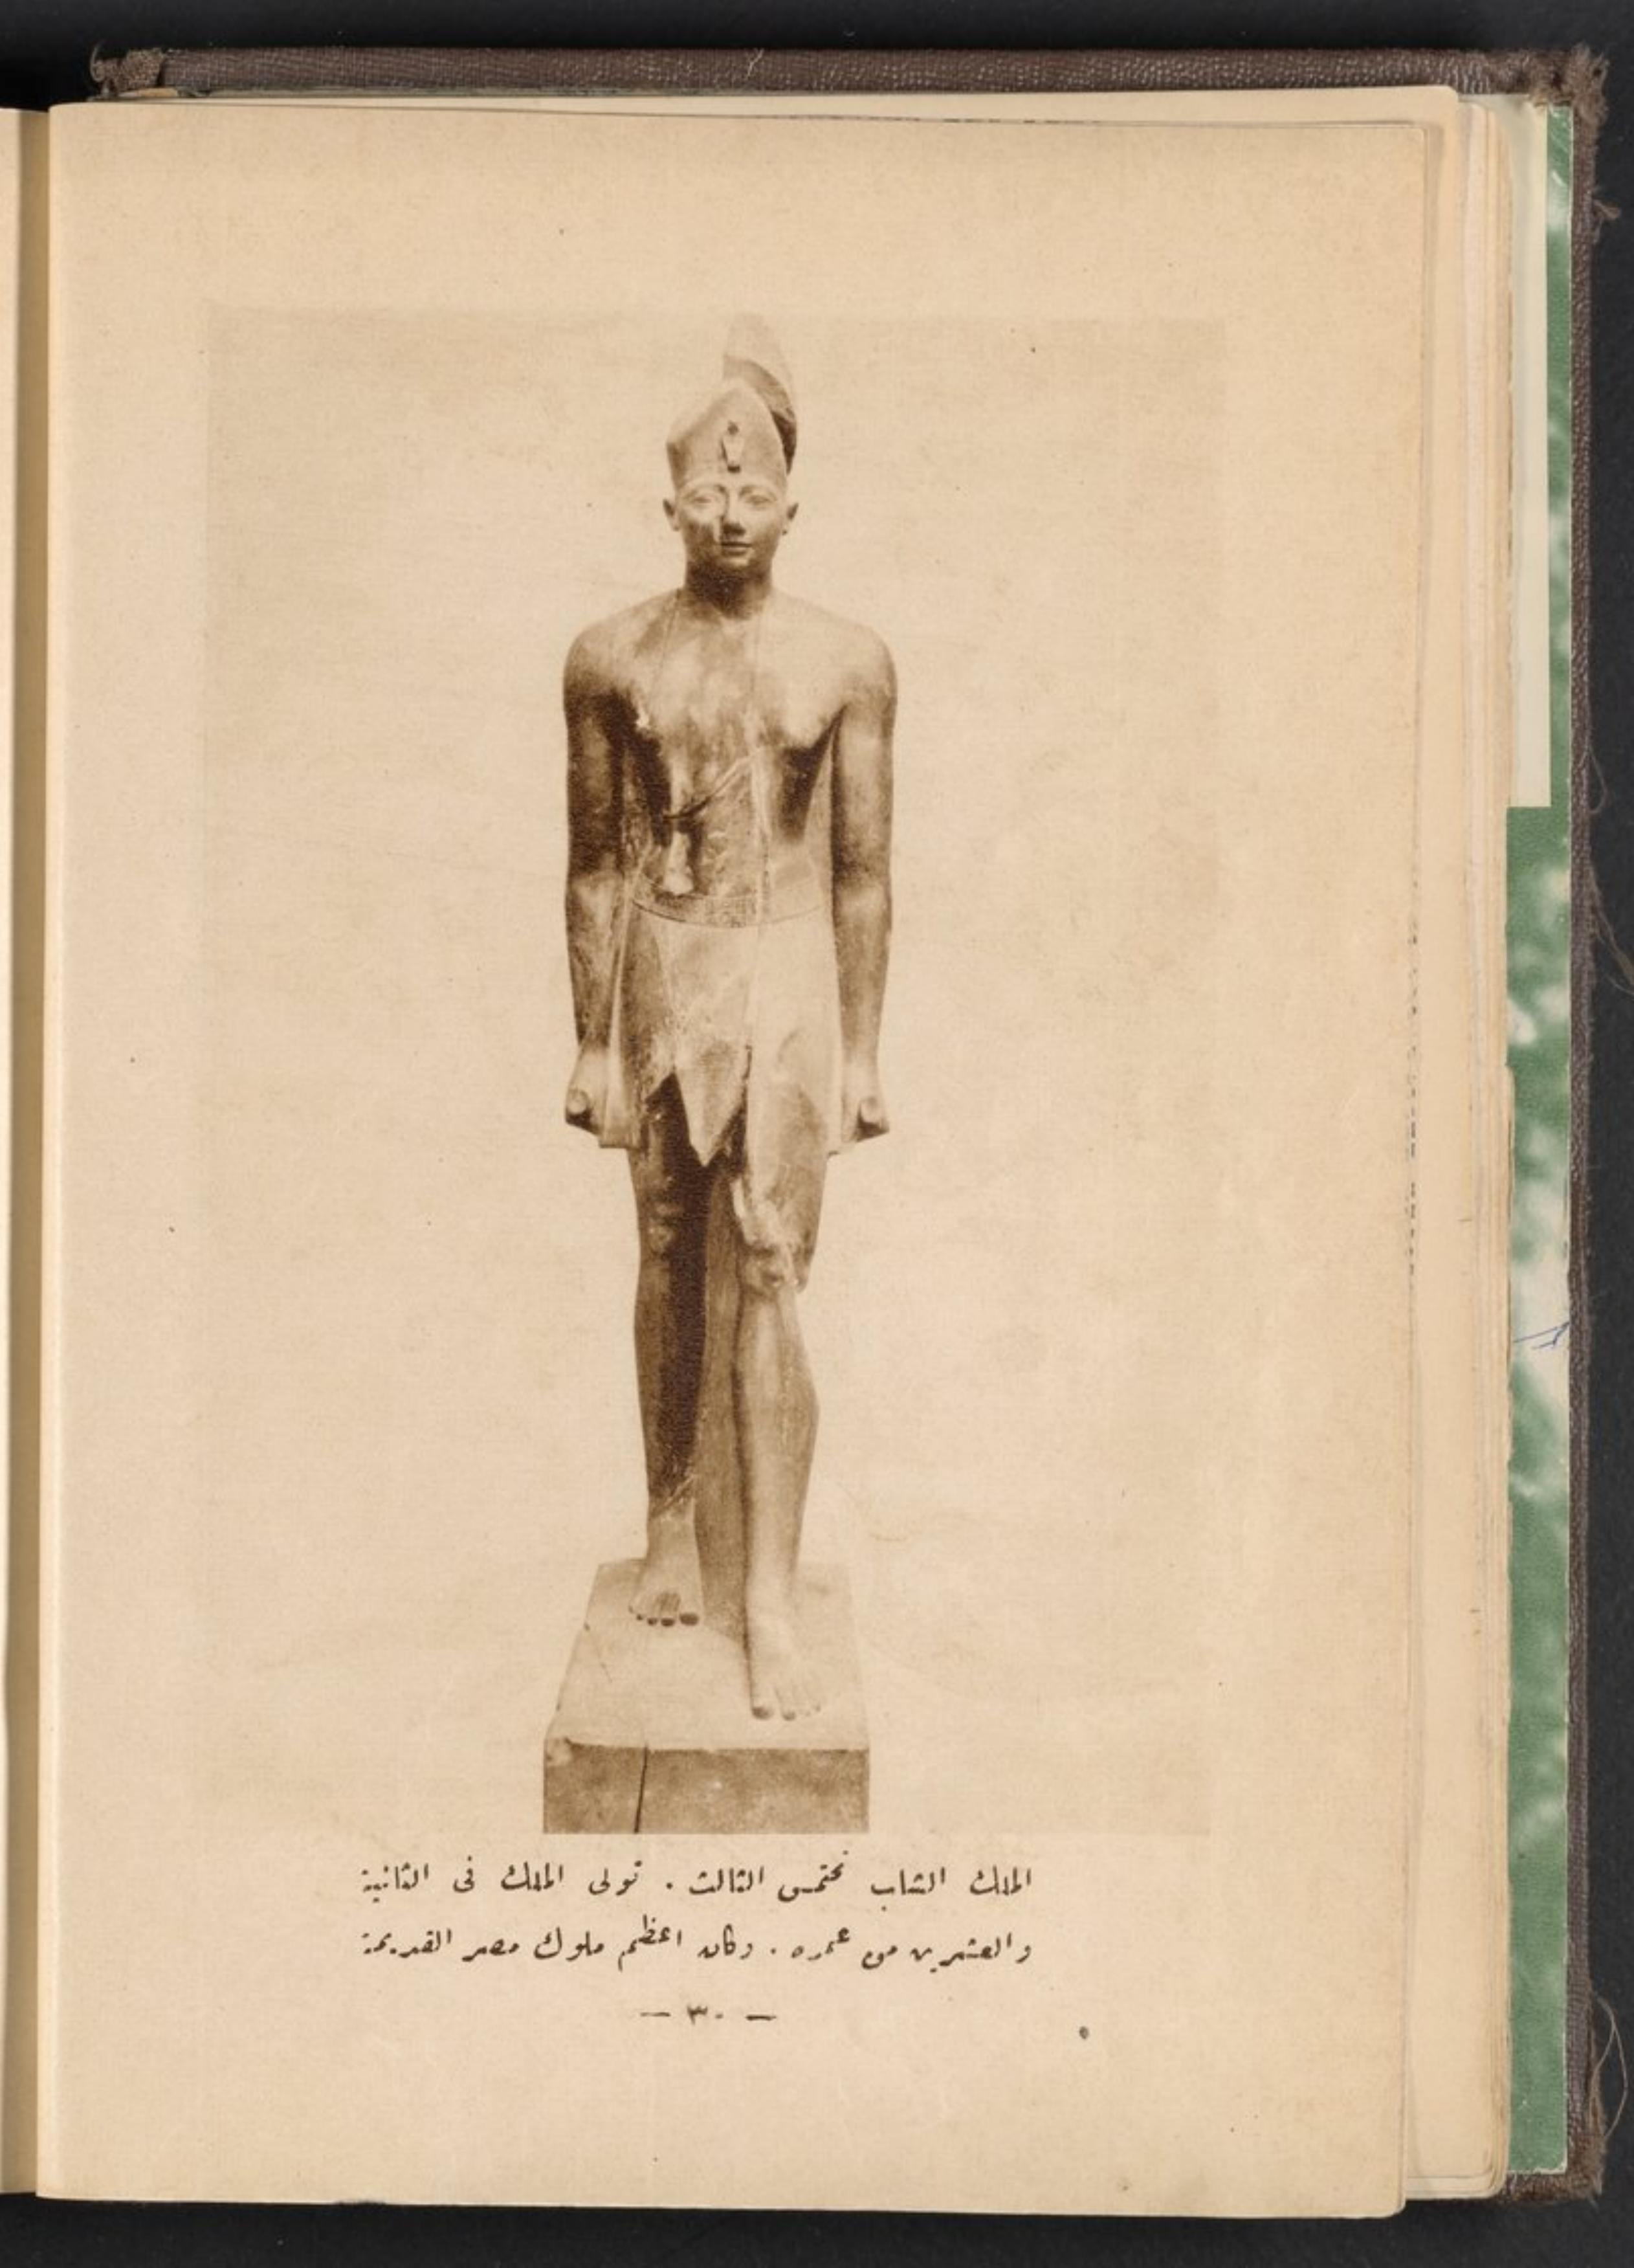 الملك الشاب تحتمس الثالث . تولى الملك فى الثانية
والعشرين من عمره . وكان اعظم ملوك مصر القديمة
— ٣٠ —